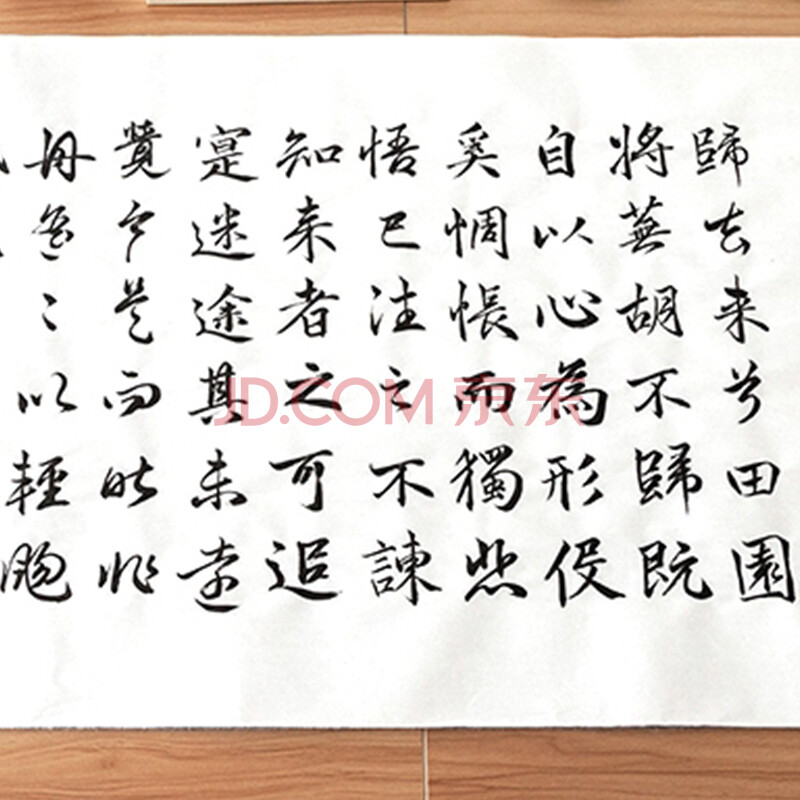 歸去来兮田園
將蕪胡不歸既
自以心為形役
奚惆悵而獨悲
悟已往之不諫
知来者之可追
寔迷途其未遠
覺今是而昨非
舟遥〻以輕颺
JD.COM 京东